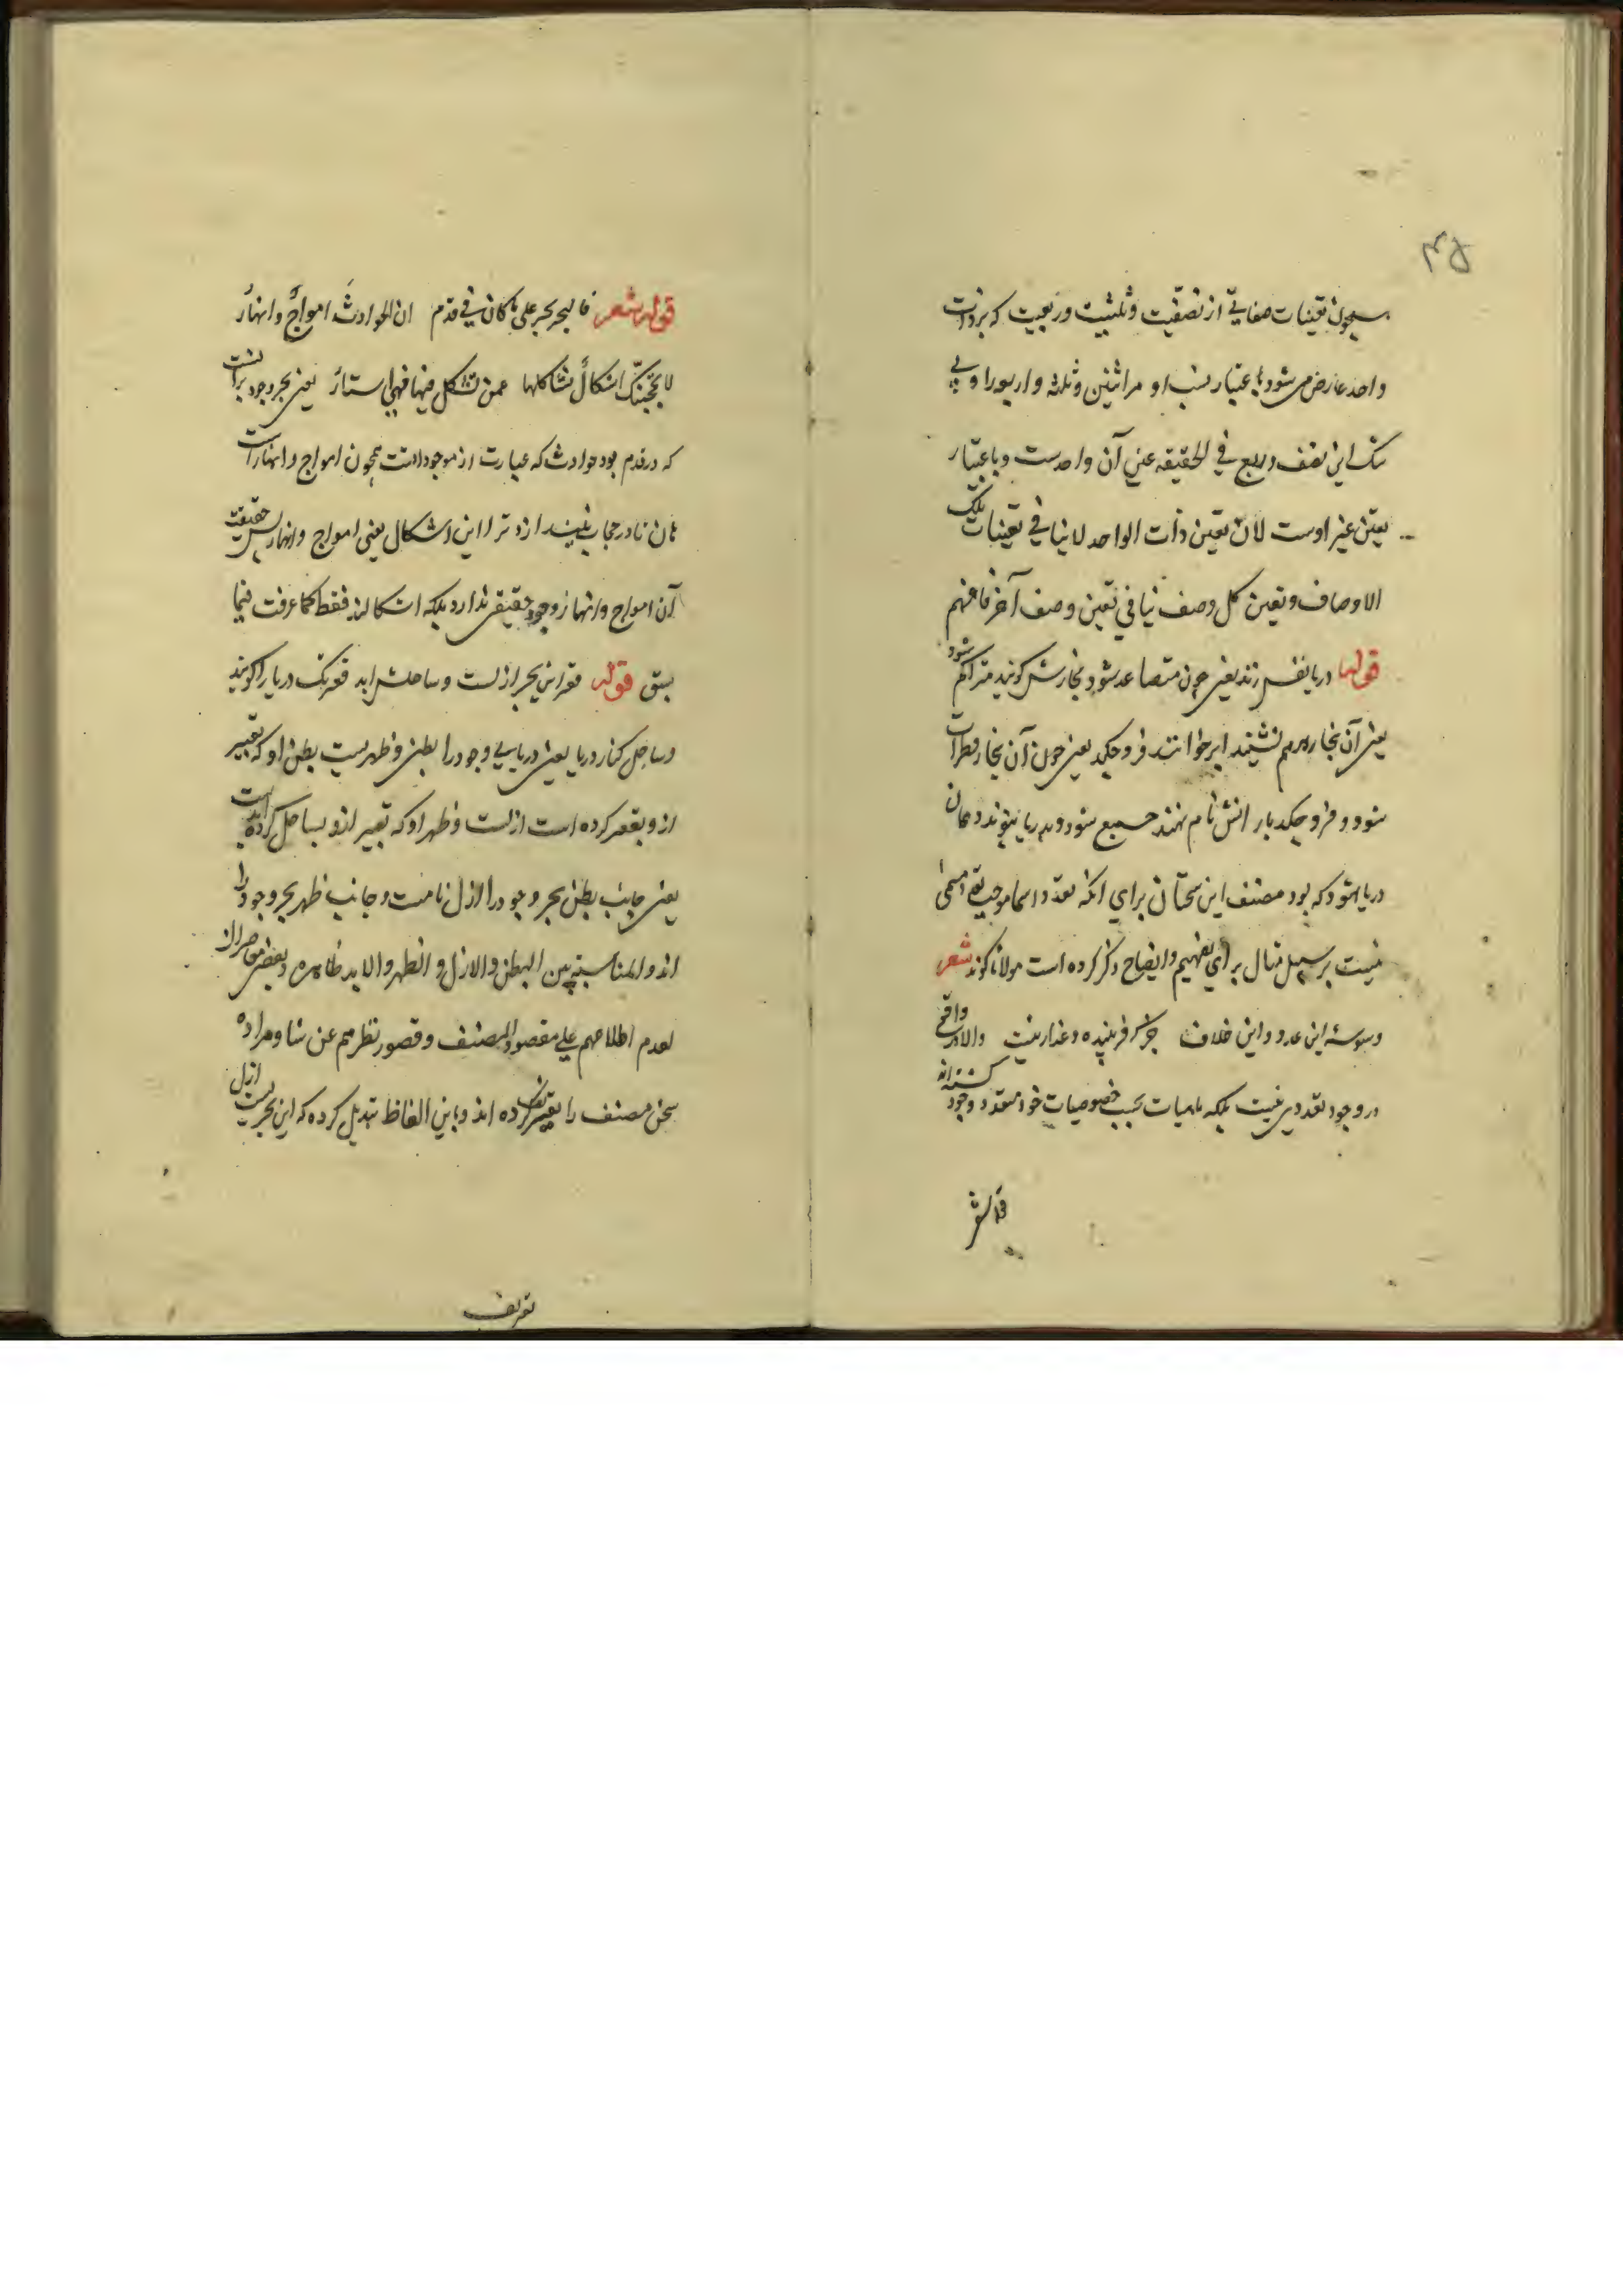 همچون تعینات صفاتی از نصفیت و ثلثیت و ربعیت که بر ذات
واحد عارض می شود باعتبار نسب او مر اثنین و ثلثه و اربعه را و بی
شک این نصف و ربع فی الحقیقه عین آن واحدست و باعتبار
تعین غیر اوست لان تعین ذات الواحد لا ینافی تعینات تلک
الاوصاف و تعین کل وصف ینافی تعین وصف آخر فافهم
قوله دریا نفس زند یعنی چون متصاعد شود بخارش گویند متراکم شود
یعنی آن بخار برهم نشیند ابر خوانند فرو چکد یعنی چون آن بخار قطرات
شود و فرو چکد بارانش نام نهند جمیع شود و بدریا پیوندد همان
دریا شود که بود مصنف این سخنان برای آنکه تعدد اسما موجب تعدد مسمی
نیست بر سبیل مثال برای تفهیم و ایضاح ذکر کرده است مولانا گوید شعر
وسوسهٔ این عدد و این خلاف جز که فریبنده و غدار نیست والا در واقع
در وجود تعددی نیست بلکه ماهیات بحسب خصوصیات خود متعدد وجود گشته اند
قوله شعر
قوله شعر فالبحر بحر علی ما کان فی قدم ان الحوادث امواج و انهار
لا یحجبنک اشکال تشاکلها عمن تشکل فیها فهی استار یعنی بحر وجود بر آنست
که در قدم بود حوادث که عبارت از موجوداتست همچون امواج و انهارست
هان تا در حجاب نیندازد ترا این اشکال یعنی امواج و انهار پس حقیقت
آن امواج و انهار وجود حقیقی ندارد بلکه اشکالند فقط کما عرفت فیما
سبق قوله قعر این بحر ازلست و ساحلش ابد قعر تک دریا را گویند
و ساحل کنار دریا یعنی دریای وجود را بطنی و ظهریست بطن او که تعبیر
ازو بقعر کرده است ازلست و ظهر او که تعبیر ازو بساحل کرده ابد است
یعنی جانب بطن بحر وجود را ازل نامست و جانب ظهر بحر وجود را
اند والمناسبة بین البطن والازل و الظهر والابد ظاهره و بعضی معاصران
لعدم اطلاعهم علی مقصود المصنف و قصور نظرهم عن شاو مراده
سخن مصنف را تغییر کرده اند و باین الفاظ تبدیل کرده که این بحریست ازل
تعریف